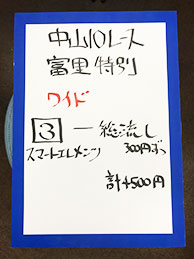 中山10レース
富里特別
ワイド
3 ― 総流し
スマートエレメンツ 300円ずつ
計4500円